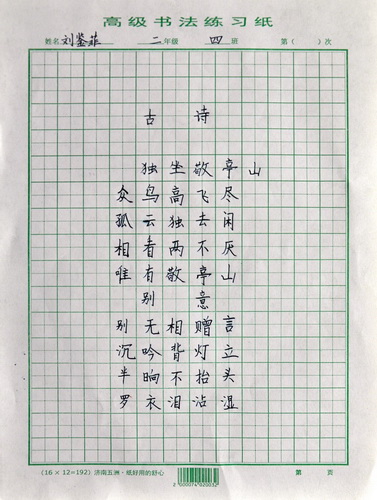 高级书法练习纸
姓名 刘鉴菲 二年级 四班 第( )次
古诗
独坐敬亭山
众鸟高飞尽
孤云独去闲
相看两不厌
唯有敬亭山
别意
别无相赠言
沉吟背灯立
半晌不抬头
罗衣泪沾湿
(16×12=192) 济南五洲·纸好用的舒心
2000074020032
第 页